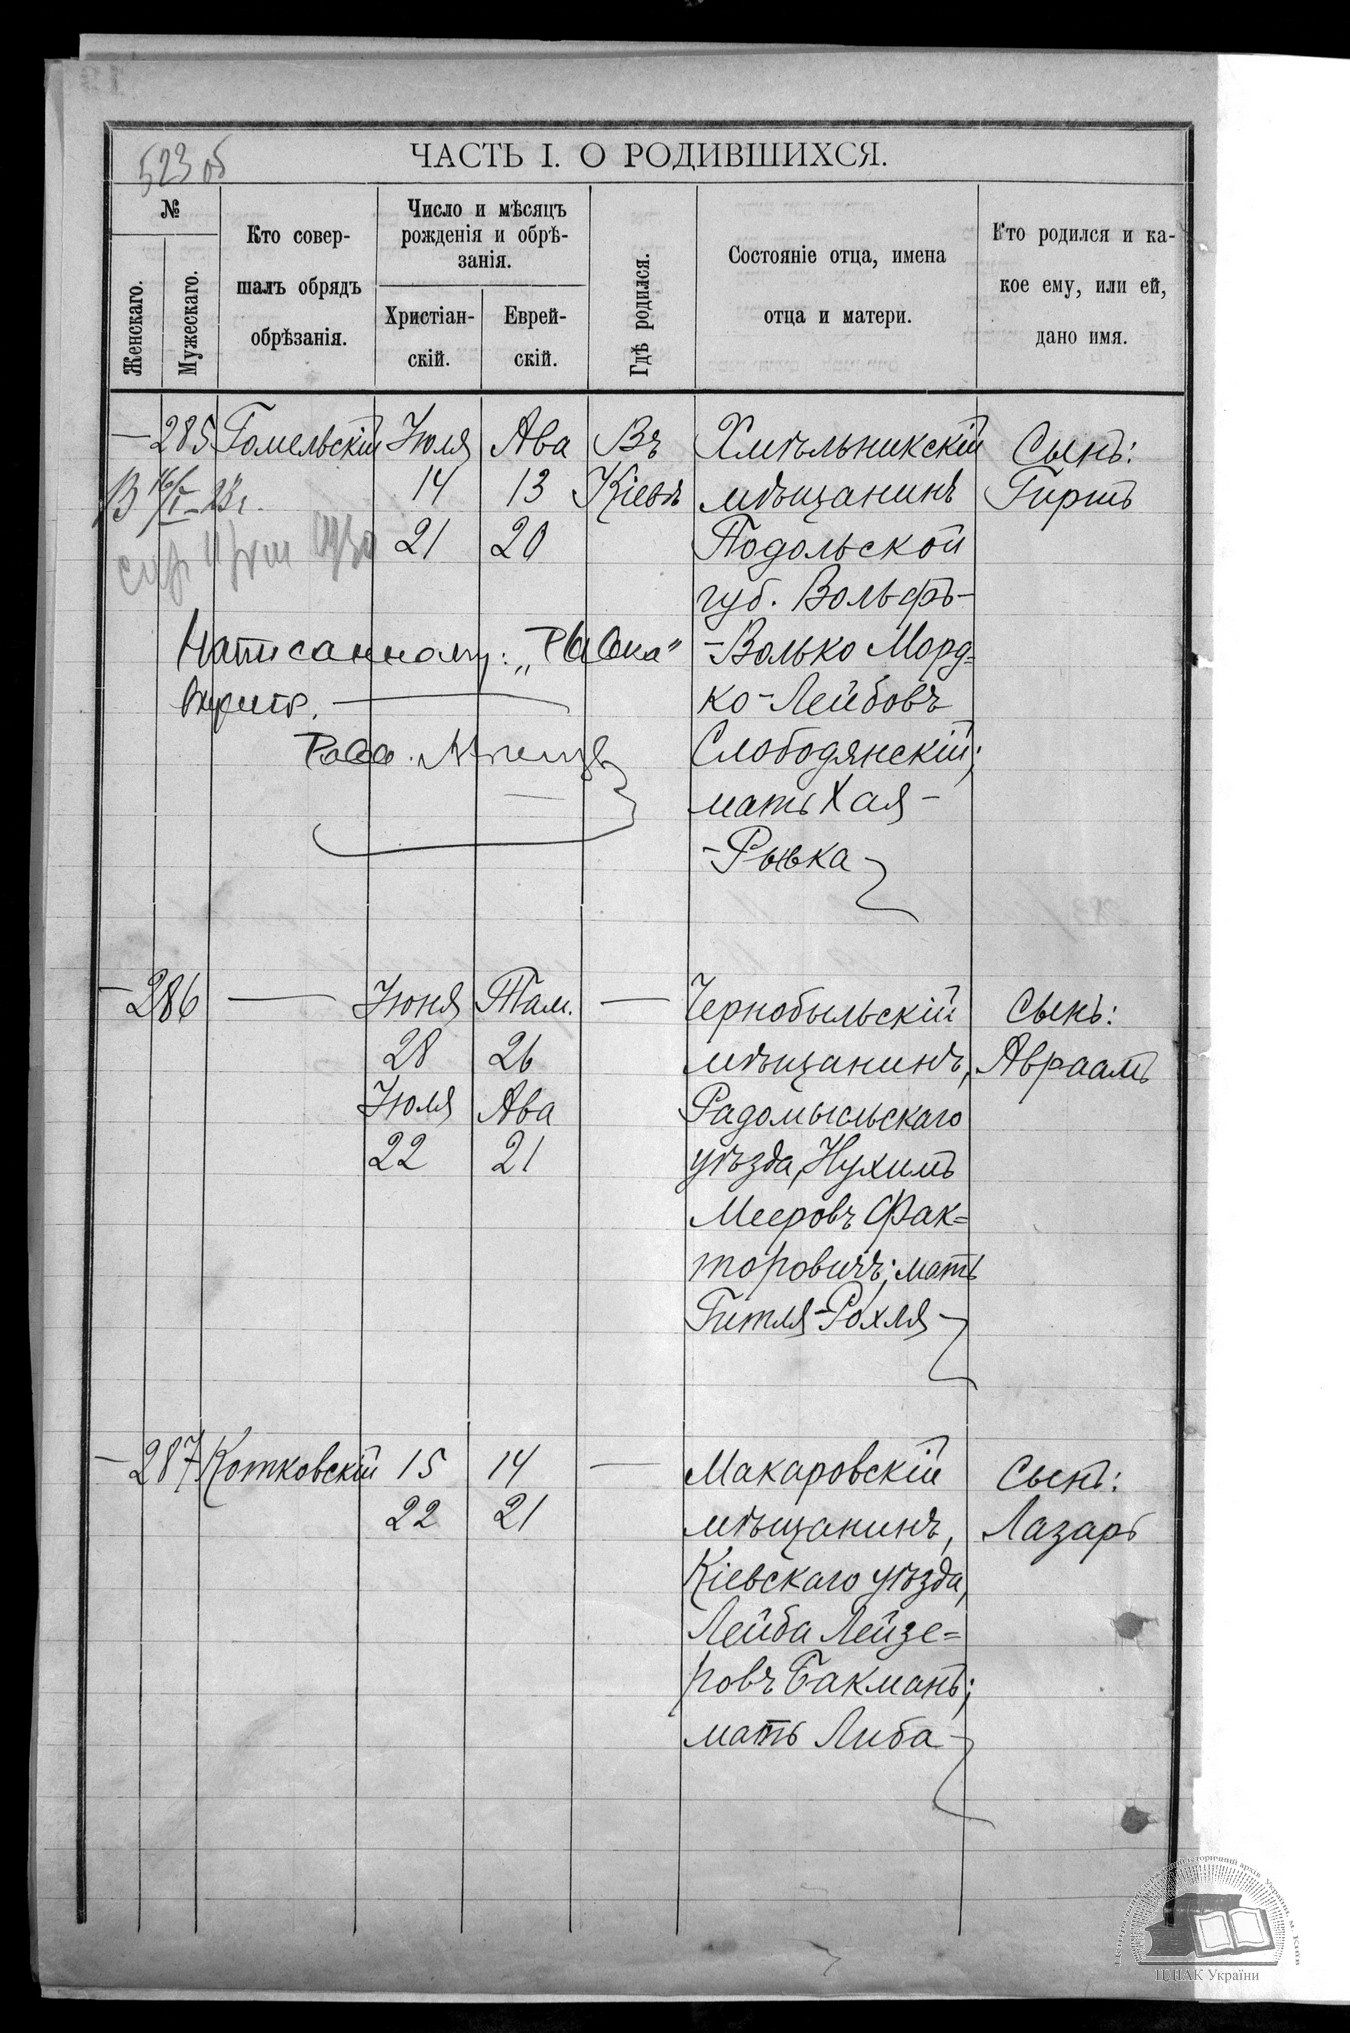 523 об
ЧАСТЬ I. О РОДИВШИХСЯ.
№
Женскаго.
Мужескаго.
Кто совер-
шалъ обрядъ
обрѣзанія.
Число и мѣсяцъ
рожденія и обрѣ-
занія.
Христіан-
скій.
Еврей-
скій.
Гдѣ родился.
Состояніе отца, имена
отца и матери.
Кто родился и ка-
кое ему, или ей,
дано имя.
— 285 Гомельскій Іюля Ава Въ Хмѣльникскій Сынъ:
14 13 Кіевѣ мѣщанинъ Гиршъ
21 20 Подольской
губ. Вольфъ-
Написанному: „Рывка" -Волько Морд=
ко-Лейбовъ
Слободянскій;
мать Хая-
-Рывка
— 286 — Іюня Там. — Чернобыльскій Сынъ:
28 26 мѣщанинъ, Авраамъ
Іюля Ава Радомысльскаго
22 21 уѣзда, Нухимъ
Мееровъ Фак=
торовичъ; мать
Гитля-Рохля
— 287 Котковскій 15 14 — Макаровскій Сынъ:
22 21 мѣщанинъ, Лазарь
Кіевскаго уѣзда,
Лейба Лейзе=
ровъ Бакманъ;
мать Либа
ЦДІАК України